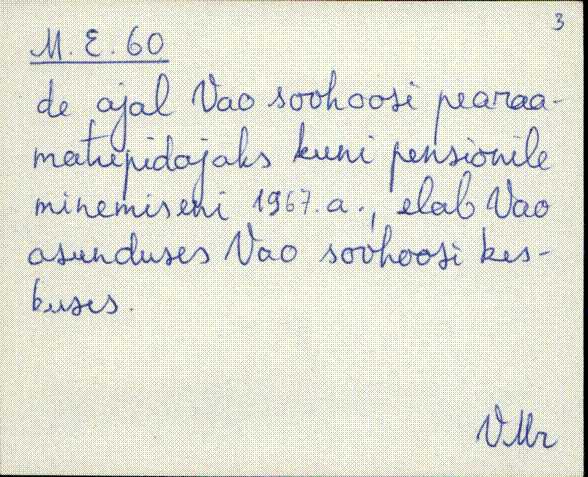 3
M. E. 60
de ajal Vao sovhoosi pearaa-
matupidajaks kuni pensionile
minemiseni 1967. a., elab Vao
asunduses Vao sovhoosi kes-
kuses.
VMr